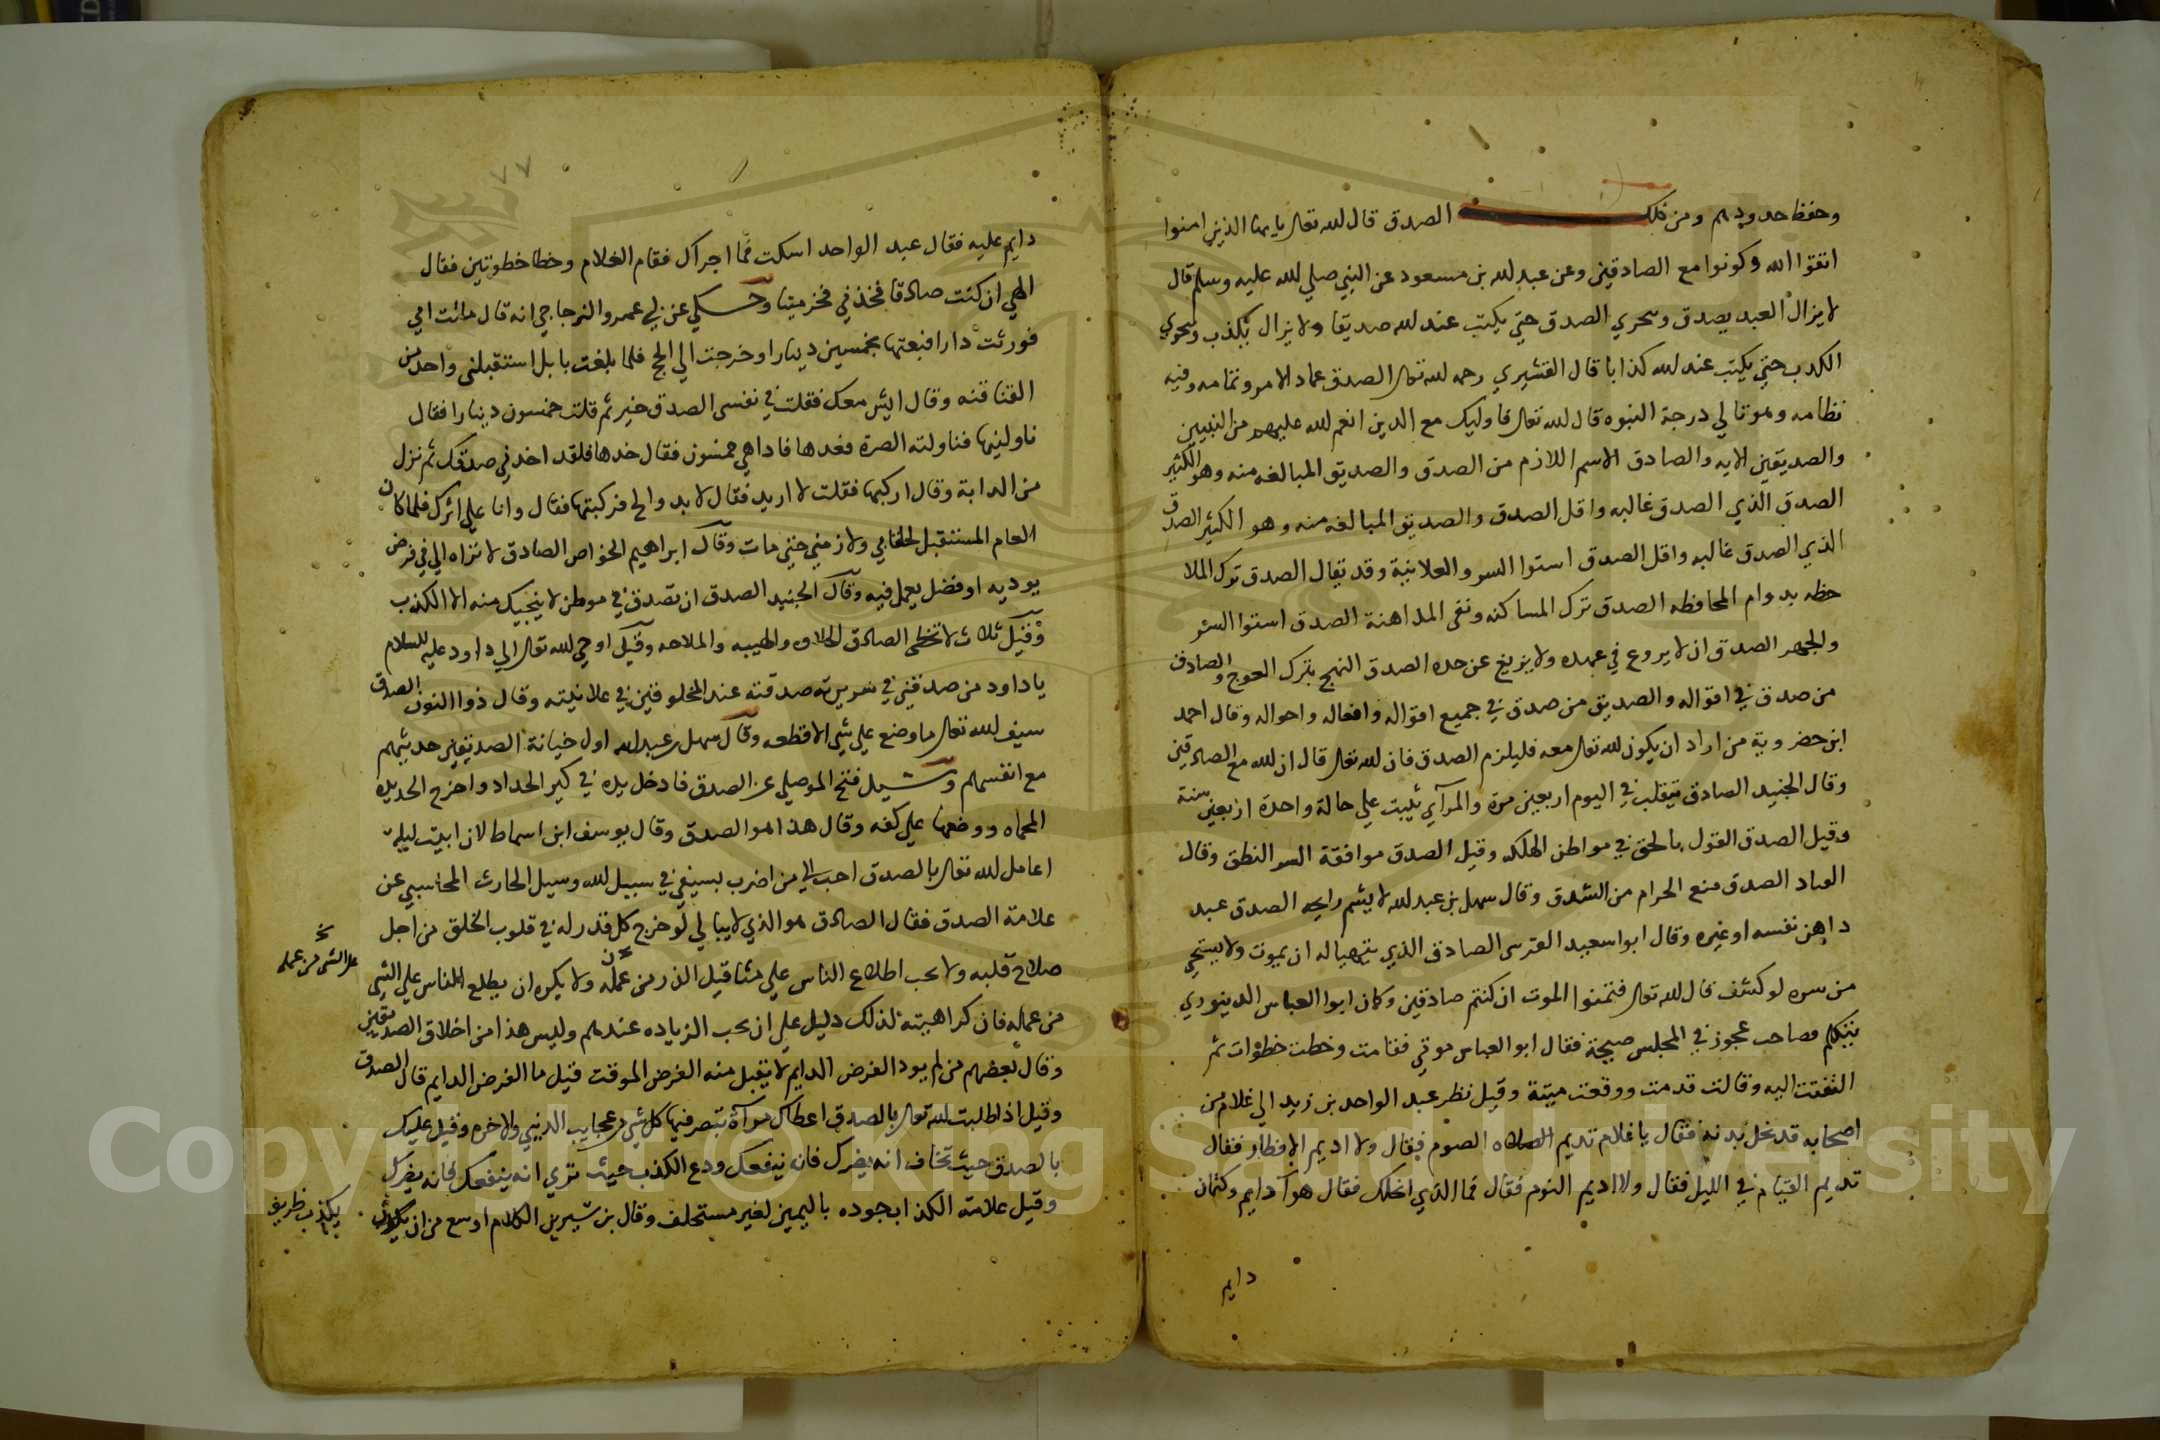 وحفظ حدودهم ومن ذلك الصدق قال الله تعالى يا ايها الذين امنوا
اتقوا الله وكونوا مع الصادقين وعن عبد الله بن مسعود عن النبي صلي الله عليه وسلم قال
لا يزال العبد يصدق ويتحري الصدق حتي يكتب عند الله صديقا ولا يزال يكذب ويتحري
الكذب حتي يكتب عند الله كذابا قال القشيري رحمه الله تعالى الصدق عماد الامر وتمامه وفيه
نظامه وهو تالي درجة النبوه قال الله تعالى فاوليك مع الذين انعم الله عليهم من النبيين
والصديقين الايه والصادق الاسم اللازم من الصدق والصديق المبالغه منه وهو الكثير
الصدق الذي الصدق غالبه واقل الصدق والصديق المبالغه منه وهو الكثير الصدق
الذي الصدق غالبه واقل الصدق استوا السر والعلانية وقد يقال الصدق ترك الملا
حظه بدوام المحافظه الصدق ترك المساكنه ونفي المداهنة الصدق استوا السر
والجهر الصدق ان لا يروع في عهده ولا يزيغ عن حده الصدق النهج بترك العوج والصادق
من صدق في اقواله والصديق من صدق في جميع اقواله وافعاله واحواله وقال احمد
ابن حضروية من اراد ان يكون الله تعالى معه فليلزم الصدق فان الله تعالى قال ان الله مع الصادقين
وقال الجنيد الصادق يتقلب في اليوم اربعين مرة والمرآي يثبت علي حالة واحدة اربعين سنة
وقيل الصدق القول بالحق في مواطن الهلكه وقيل الصدق موافقة السر النطق وقال
العباد الصدق منع الحرام من الشدق وقال سهل بن عبد الله لا يشم رايحه الصدق عبد
داهن نفسه او غيره وقال ابو اسعيد القرسي الصادق الذي يتهياله ان يموت ولا يستحي
من سره لو كشف قال الله تعالى فتمنوا الموت ان كنتم صادقين وكان ابوا العباس الدينوري
يتكلم فصاحت عجوز في المجلس صيحة فقال ابو العباس موتي فقامت وخطت خطوات ثم
التفتت اليه وقالت قد مت ووقعت ميتة وقيل نظر عبد الواحد بن زيد الي غلام من
اصحابه قد نحل بدنه فقال يا غلام تديم الصوم فقال ولا اديم الافطار فقال
تديم القيام في الليل فقال ولا اديم النوم فقال فما الذي انحلك فقال هوآ دايم وكتمان
دايم
٧٧
دايم عليه فقال عبد الواحد اسكت فما اجراك فقام الغلام وخطا خطوتين فقال
الهي ان كنت صادقا فخذني فخر ميتا وحكي عن ابي عمرو الزجاجي انه قال ماتت امي
فورثت دارا فبعتها بخمسين دينارا وخرجت الي الحج فلما بلغت بابل استقبلني واحد من
القناقنه وقال ايش معك فقلت في نفسي الصدق خير ثم قلت خمسون دينارا فقال
ناولنيها فناولته الصرة فعدها فاذا هي خمسون فقال خذها فلقد اخذني صدقك ثم نزل
من الدابة وقال اركبها فقلت لا اريد فقال لا بد والح فركبتها فقال وانا علي اثرك فلما كان
العام المستقبل لحقني ولازمني حتي مات وقال ابراهيم الخواص الصادق لا تراه الا في فرض
يوديه او فضل يعمل فيه وقال الجنيد الصدق ان تصدق في موطن لا ينجيك منه الا الكذب
وقيل ثلاث لا تخطي الصادق الحلاوه والهيبه والملاحه وقيل اوحي الله تعالى الي داود عليه السلام
يا داود من صدقني في سريرته صدقته عند المخلوقين في علانيته وقال ذوا النون الصدق
سيف الله تعالى ما وضع علي شي الا قطعه وقال سهل بن عبد الله اول خيانة الصديقين حديثهم
مع انفسهم وسيل فتح الموصلي عن الصدق فادخل يده في كير الحداد واخرج الحديده
المحماه ووضعها علي كفه وقال هذا هو الصدق وقال يوسف ابن اسماط لان ابيت ليله
اعامل الله تعالى بالصدق احب الي من اضرب بسيفي في سبيل الله وسيل الحارث المحاسبي عن
علامة الصدق فقال الصادق هو الذي لا يبالي لو خرج كل قدر له في قلوب الخلق من اجل
صلاح قلبه ولا يحب اطلاع الناس علي مثاقيل الذر من عمله ولا يكره ان يطلع الناس علي الشي
علي الشي من عمله
من عماله فان كراهيته لذلك دليل علي ان يحب الزياده عندهم وليس هذا من اخلاق الصديقين
وقال بعضهم من لم يود الفرض الدايم لا يقبل منه الفرض الموقت قيل ما الفرض الدايم قال الصدق
وقيل اذا طلبت الله تعالى بالصدق اعطاك مرآة تبصر فيها كل شي من عجايب الدنيي والاخره وقيل عليك
بالصدق حيث تخاف انه يضرك فانه ينفعك ودع الكذب حيث تري انه ينفعك فانه يضرك
وقيل علامة الكذاب جوده باليمين لغير مستحلف وقال بن سيرين الكلام اوسع من ان
يكذب ظريف